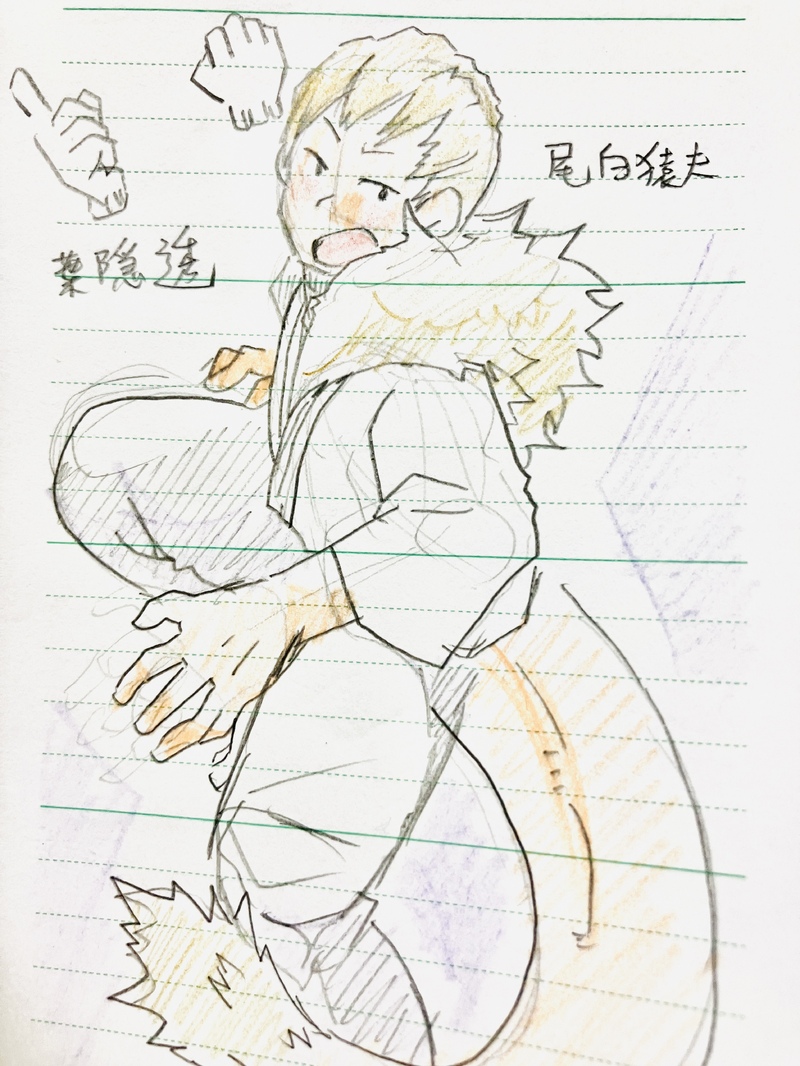 尾白猿夫
葉隠透